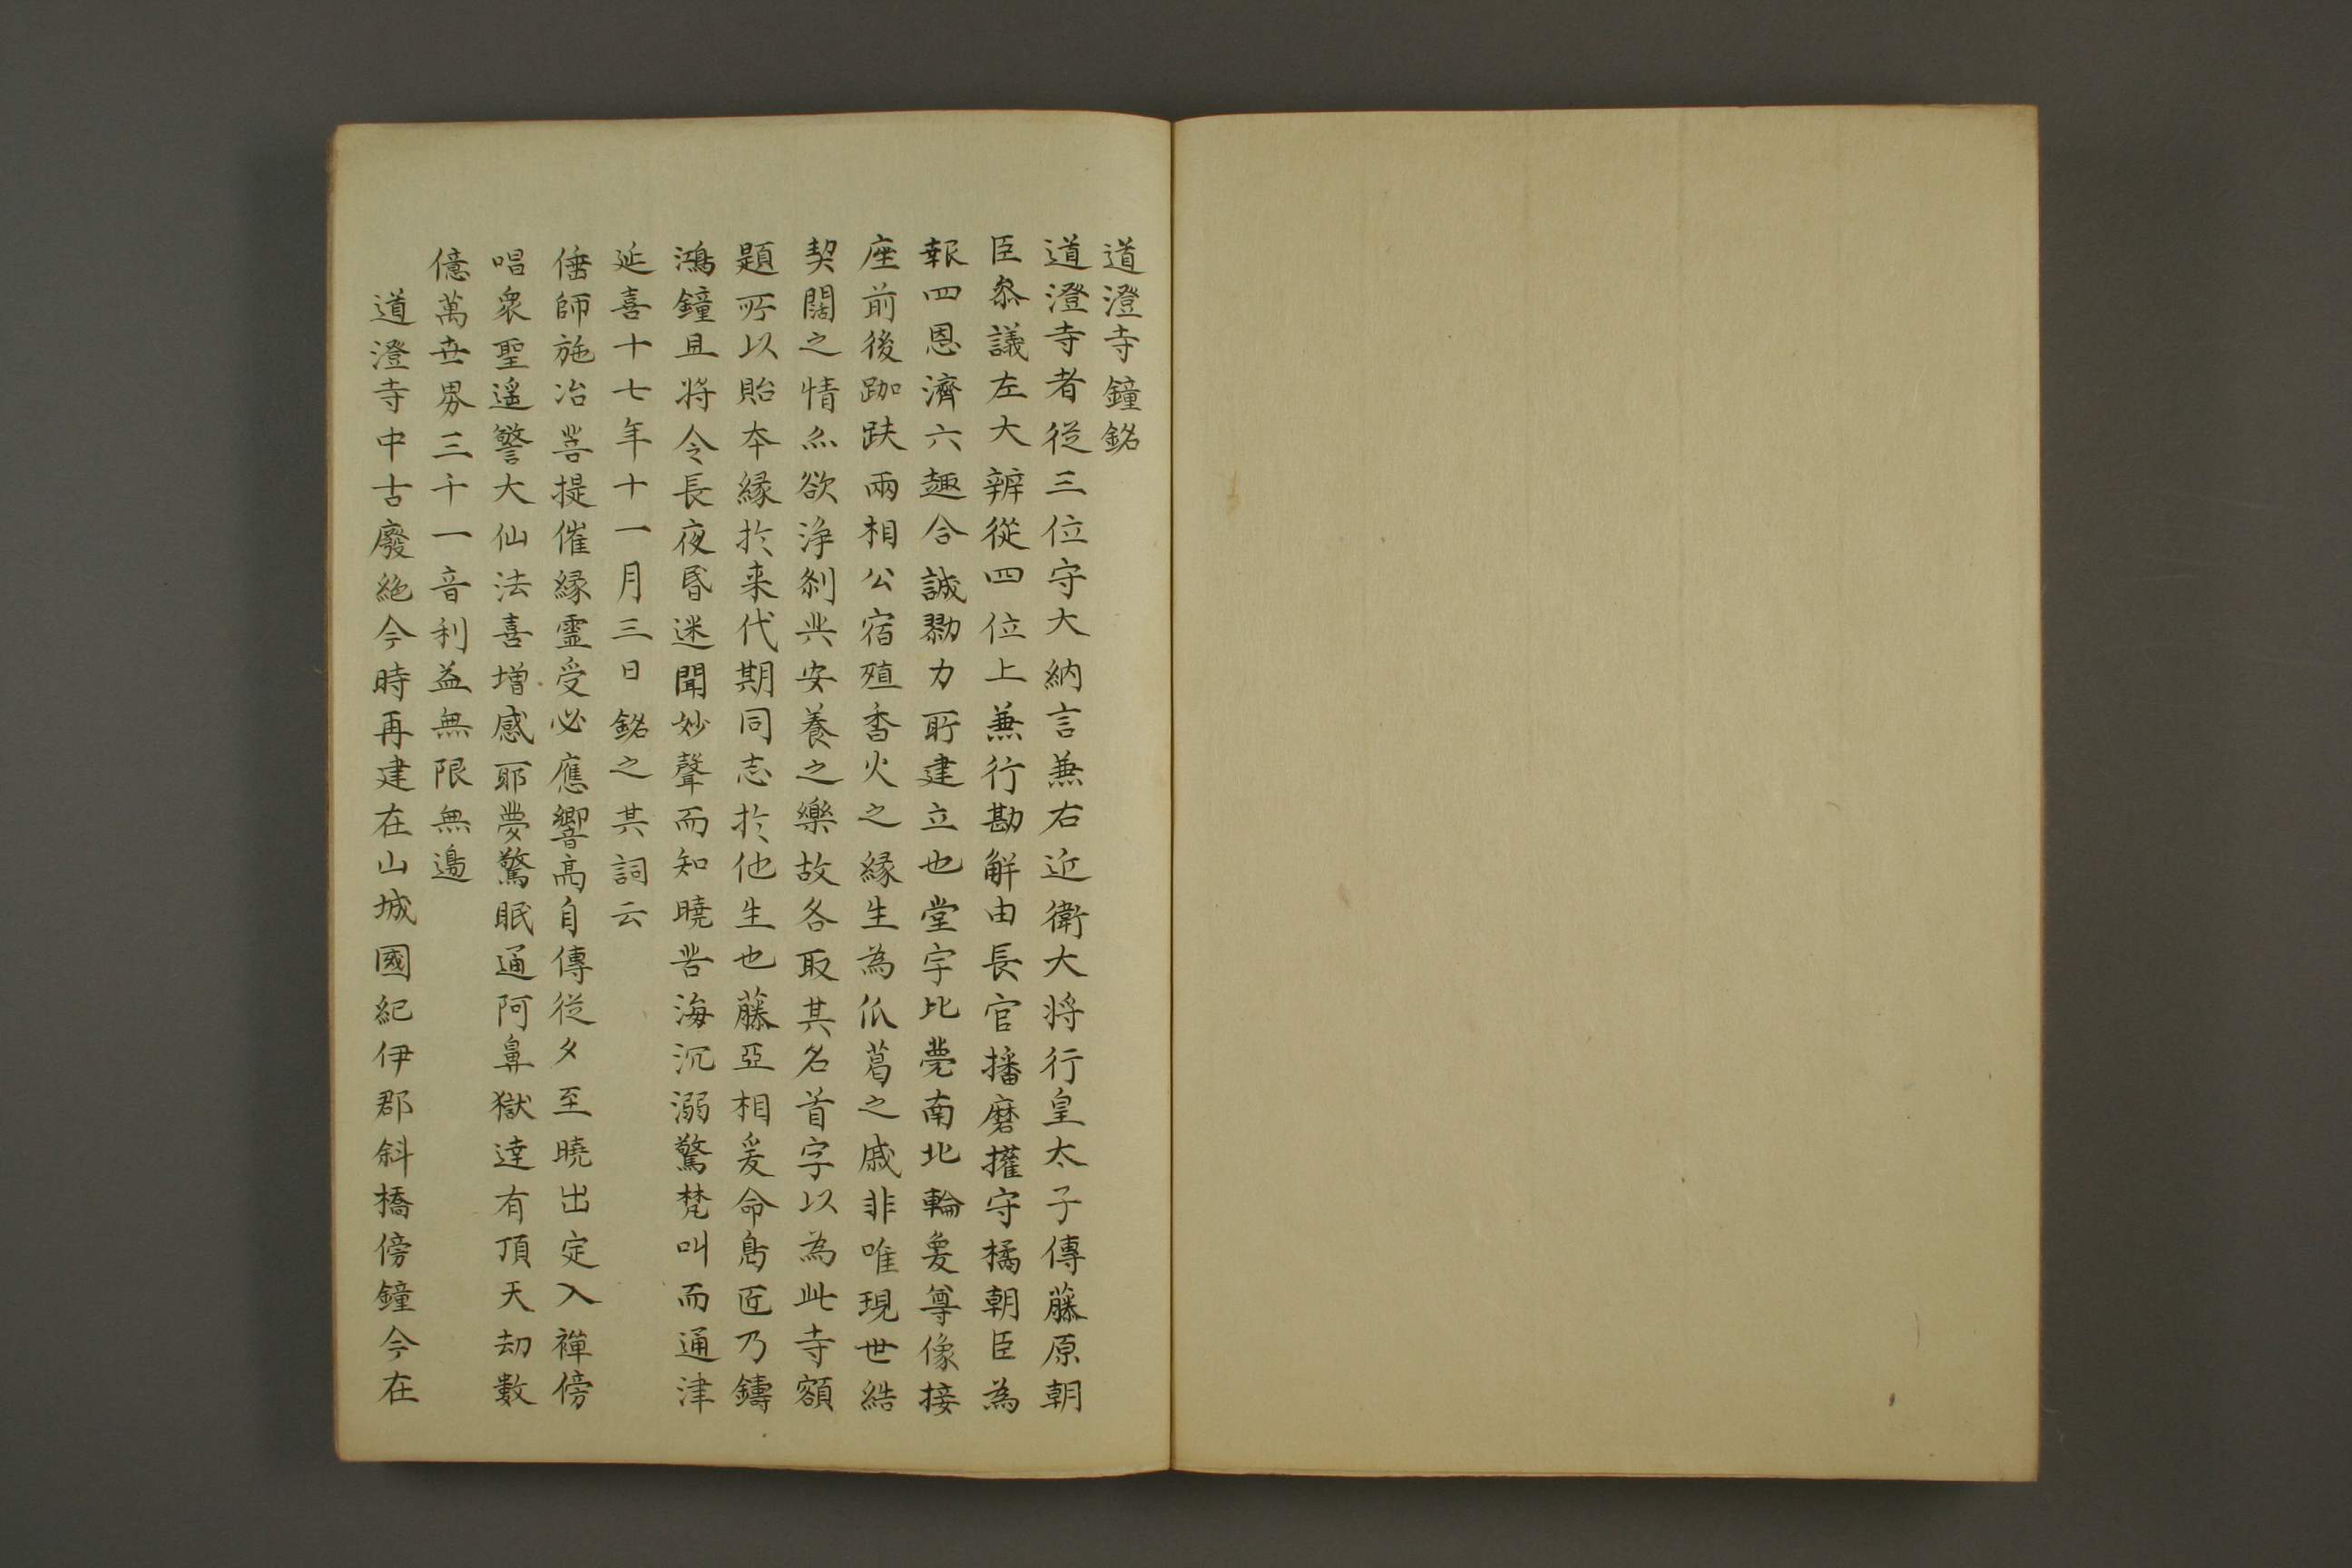 道澄寺鐘銘
道澄寺者從三位守大納言兼右近衛大将行皇太子傳藤原朝
臣叅議左大辨從四位上兼行勘解由長官播磨權守橘朝臣為
報四恩濟六趣合誠勠力所建立也堂宇比甍南北輪奐尊像接
座前後跏趺兩相公宿殖香火之縁生為瓜葛之戚非唯現世結
契闊之情亦欲浄刹共安養之樂故各取其名首字以為此寺額
題所以貽本縁於来代期同志於他生也藤亞相爰命鳧匠乃鑄
鴻鐘且将令長夜昏迷聞妙聲而知曉苦海沉溺驚梵叫而通津
延喜十七年十一月三日銘之其詞云
倕師施冶菩提催縁霊受必應響高自傳從夕至曉出定入禅傍
唱衆聖遥警大仙法喜增感耶夢驚眠通阿鼻獄達有頂天劫數
億萬世界三千一音利益無限無邊
道澄寺中古廢絶今時再建在山城國紀伊郡斜橋傍鐘今在